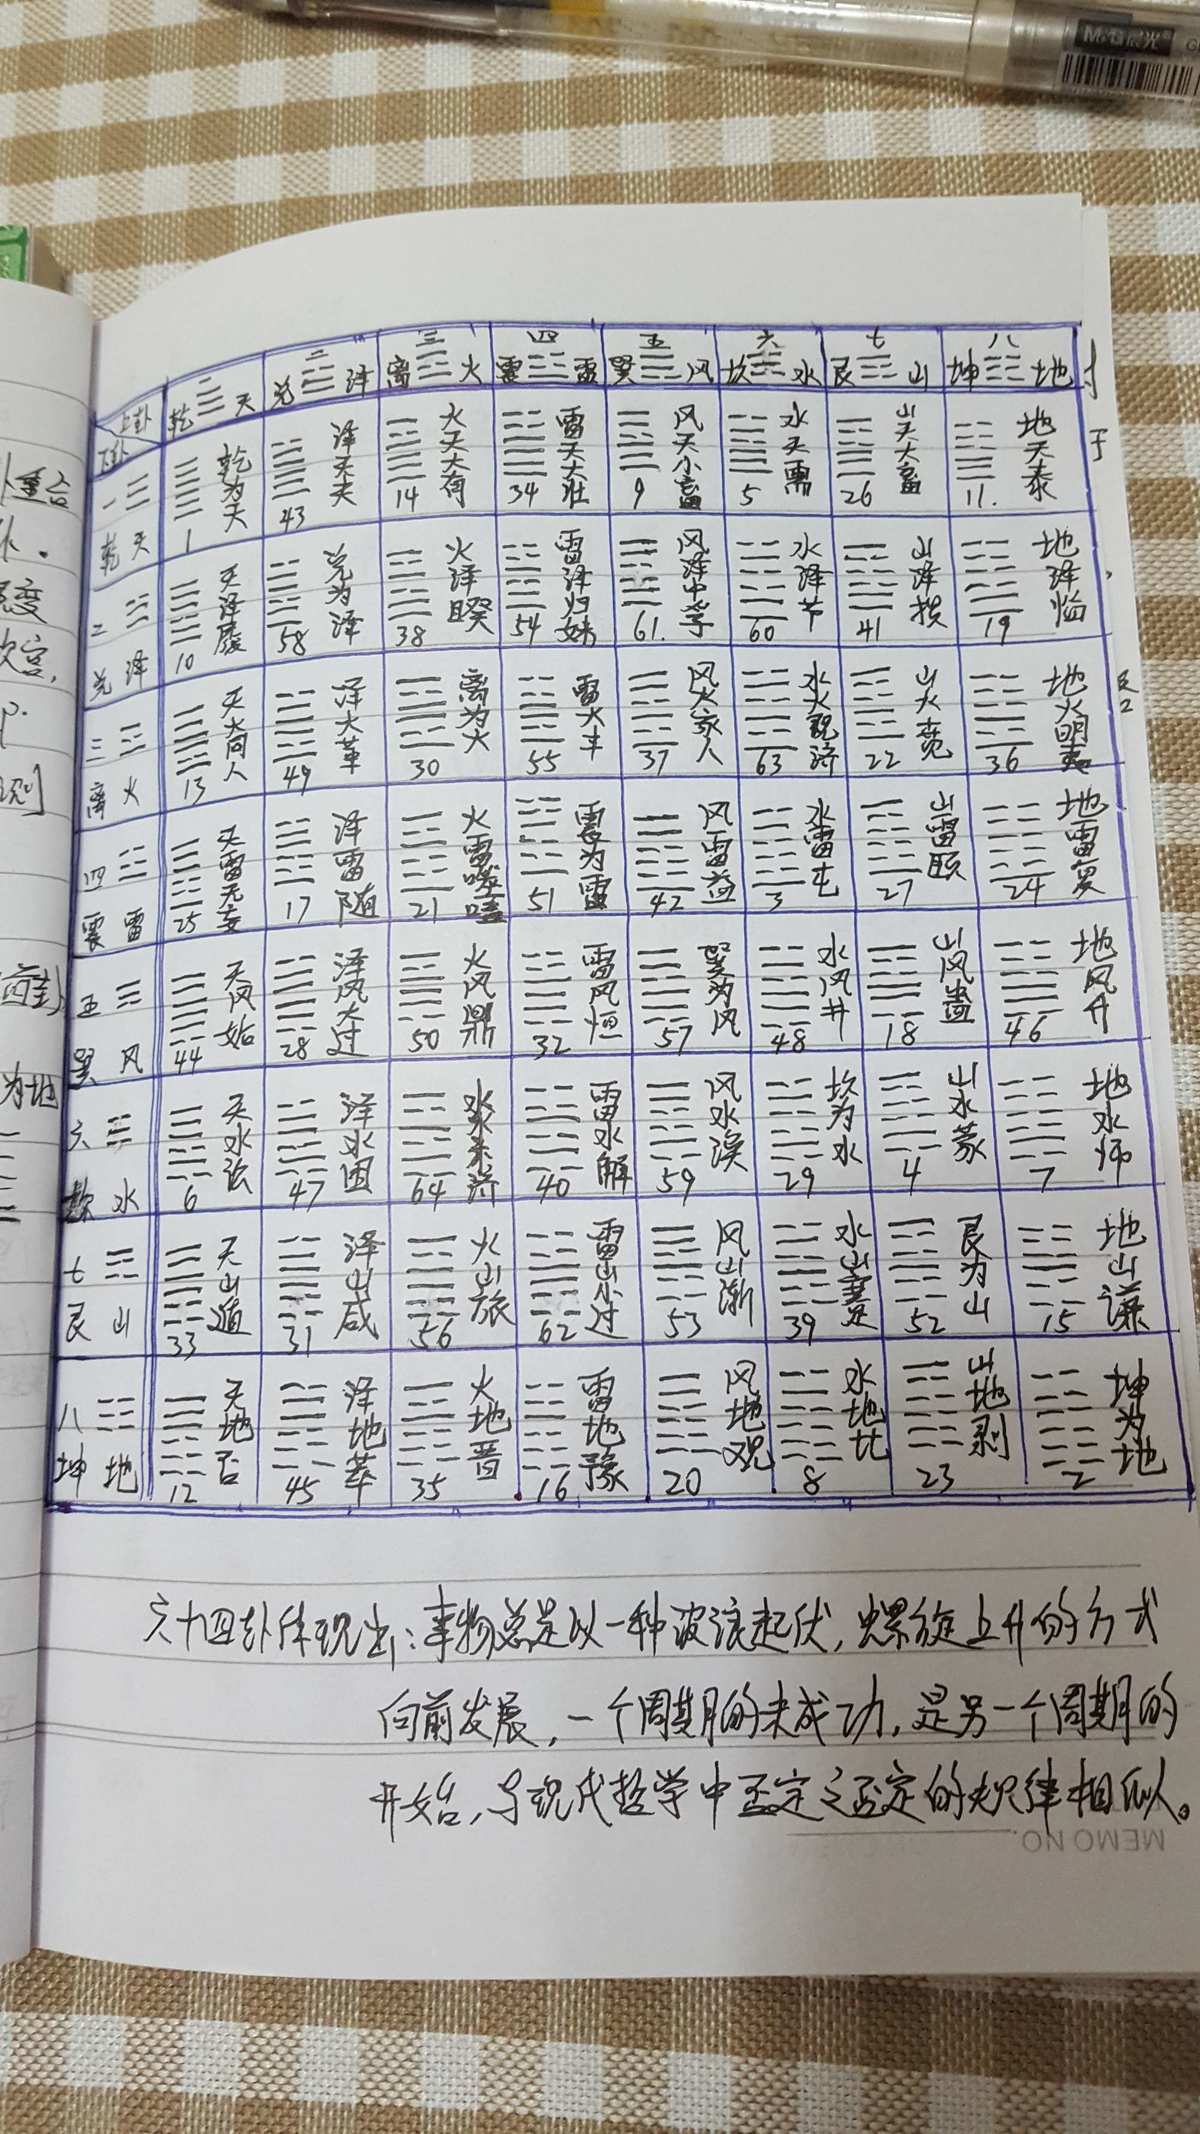 M&G 晨光
一 二 三 四 五 六 七 八
上卦 乾 天 兑 泽 离 火 震 雷 巽 风 坎 水 艮 山 坤 地
下卦
一 乾 天 乾为天 1 泽天夬 43 火天大有 14 雷天大壮 34 风天小畜 9 水天需 5 山天大畜 26 地天泰 11.
二 兑 泽 天泽履 10 兑为泽 58 火泽睽 38 雷泽归妹 54 风泽中孚 61. 水泽节 60 山泽损 41 地泽临 19
三 离 火 天火同人 13 泽火革 49 离为火 30 雷火丰 55 风火家人 37 水火既济 63 山火贲 22 地火明夷 36
四 震 雷 天雷无妄 25 泽雷随 17 火雷噬嗑 21 震为雷 51 风雷益 42 水雷屯 3 山雷颐 27 地雷复 24
五 巽 风 天风姤 44 泽风大过 28 火风鼎 50 雷风恒 32 巽为风 57 水风井 48 山风蛊 18 地风升 46
六 水 天水讼 6 泽水困 47 火水未济 64 雷水解 40 风水涣 59 坎为水 29 山水蒙 4 地水师 7
七 艮 山 天山遁 33 泽山咸 31 火山旅 56 雷山小过 62 风山渐 53 水山蹇 39 艮为山 52 地山谦 15
八 坤 地 天地否 12 泽地萃 45 火地晋 35 雷地豫 16 风地观 20 水地比 8 山地剥 23 坤为地 2
六十四卦体现出：事物总是以一种波浪起伏，螺旋上升的方式
向前发展，一个周期的未成功，是另一个周期的
开始，与现代哲学中否定之否定的规律相似。
MEMO NO.
重合
变
次宫，
为地